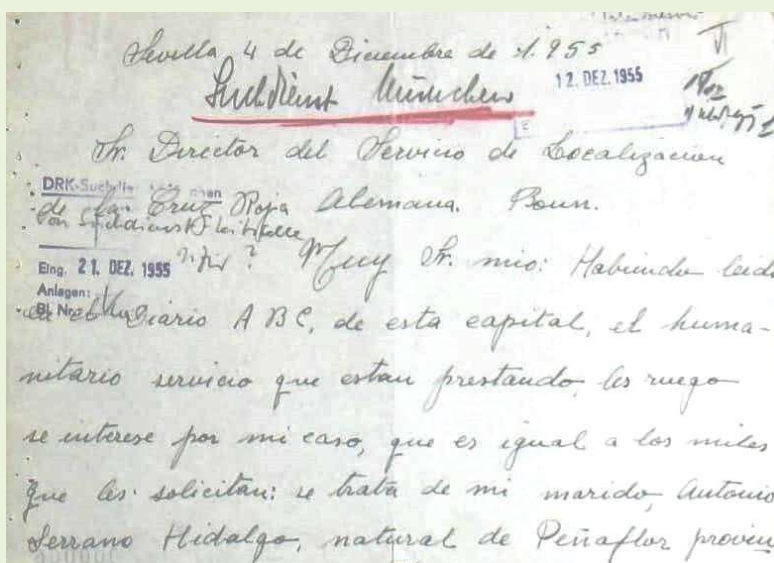 Sevilla 4 de Diciembre de 1.955
12. DEZ. 1955
Suchdienst München
Sr. Director del Servicio de Localización
DRK-Suchdienst
de la Cruz Roja Alemana. Bonn.
von Suchdienst Leitstelle
Eing. 21. DEZ. 1955
Muy Sr. mio: Habiendo leido
Anlagen:
en el Diario A B C, de esta capital, el huma-
nitario servicio que estan prestando, les ruego
se interese por mi caso, que es igual a los miles
que les solicitan: se trata de mi marido, Antonio
Serrano Hidalgo, natural de Peñaflor provin